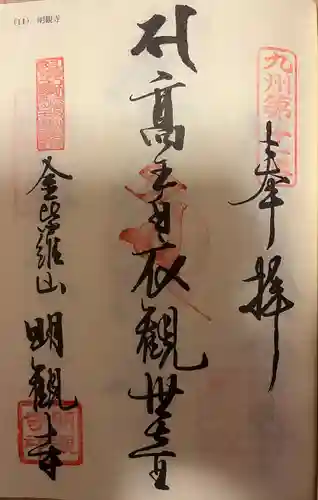 (11) 明観寺
奉拝
高王白衣観世音
金毘羅山
明観寺
九州第十一